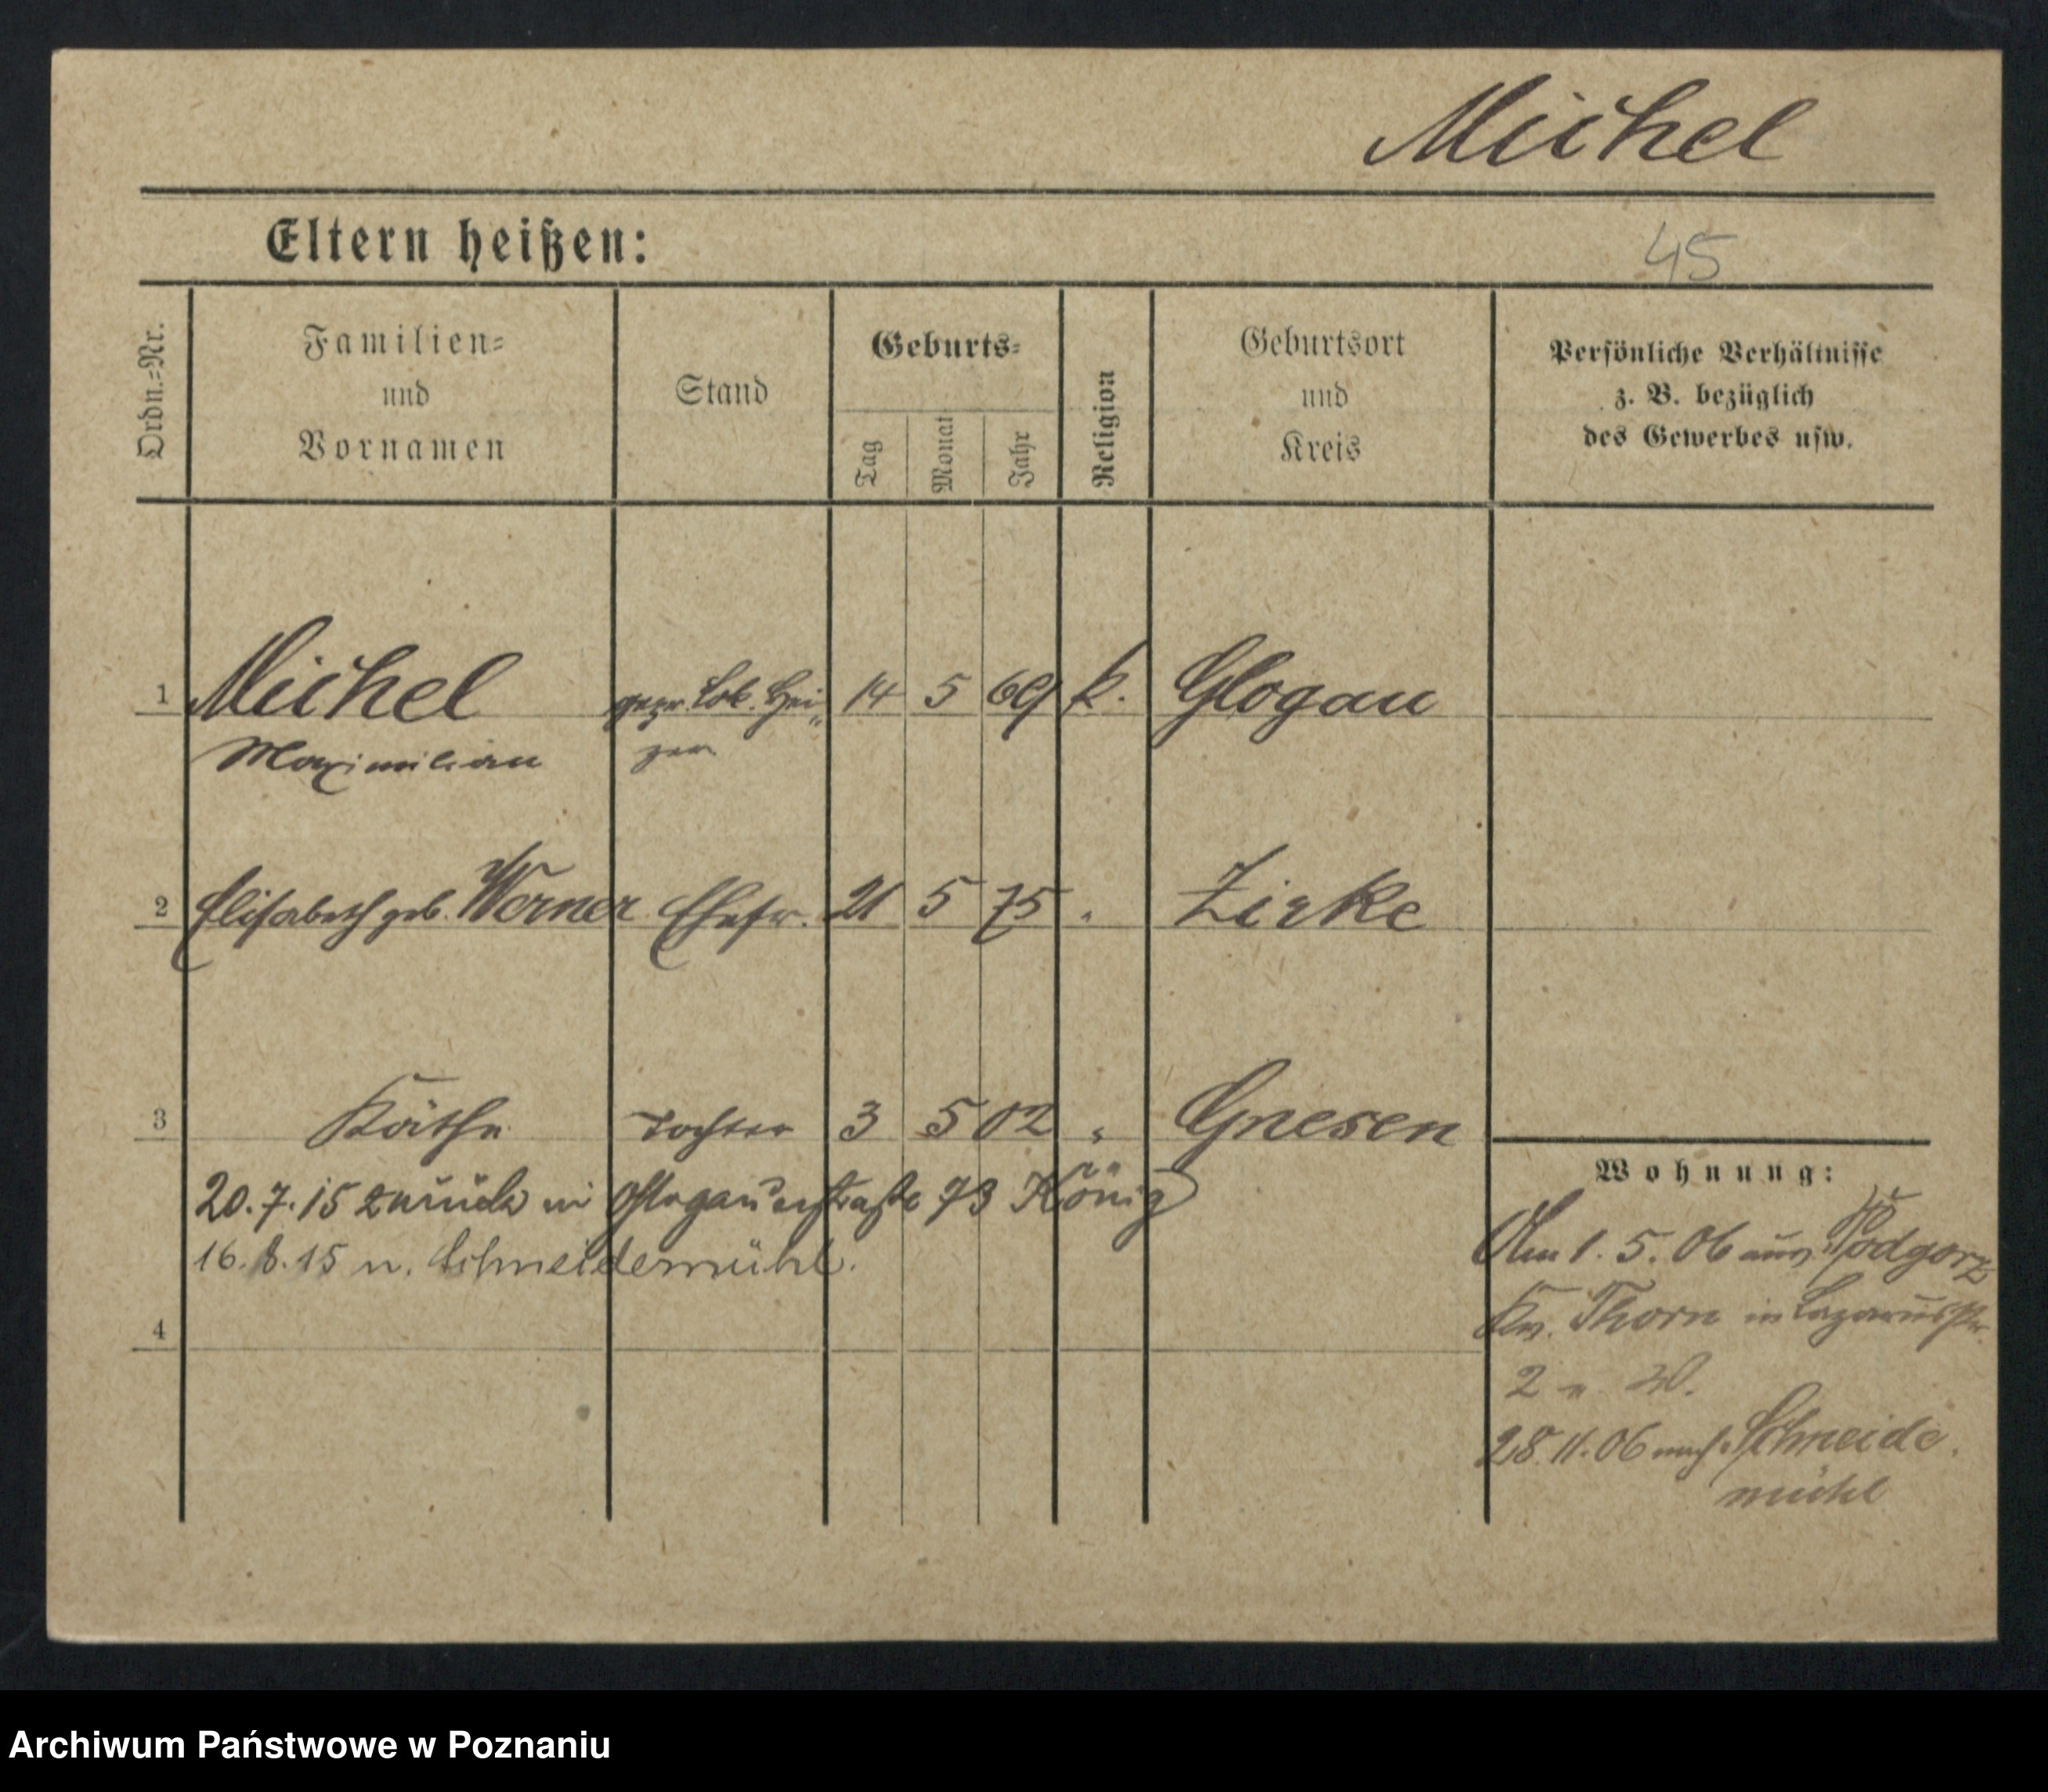 Michel
Eltern heißen:
45
Ordn.=Nr.
Familien=
und
Vornamen
Stand
Geburts=
Tag
Monat
Jahr
Religion
Geburtsort
und
Kreis
Persönliche Verhältnisse
z. B. bezüglich
des Gewerbes usw.
1 Michel gepr. Lok. Hei= 14 5 69 k. Glogau
Maximilian zer
2 Elisabeth geb. Werner Ehefr. 21 5 75 " Zirke
3 Käthe Tochter 3 5 02 " Gnesen
20.7.15 zurück in Glogauerstraße 73 König
16.8.15 n. Schneidemühl.
4
Wohnung:
Am 1.5.06 aus Podgorz
Kr. Thorn in Lazarusstr.
2
28.11.06 nach Schneide
mühl
Archiwum Państwowe w Poznaniu